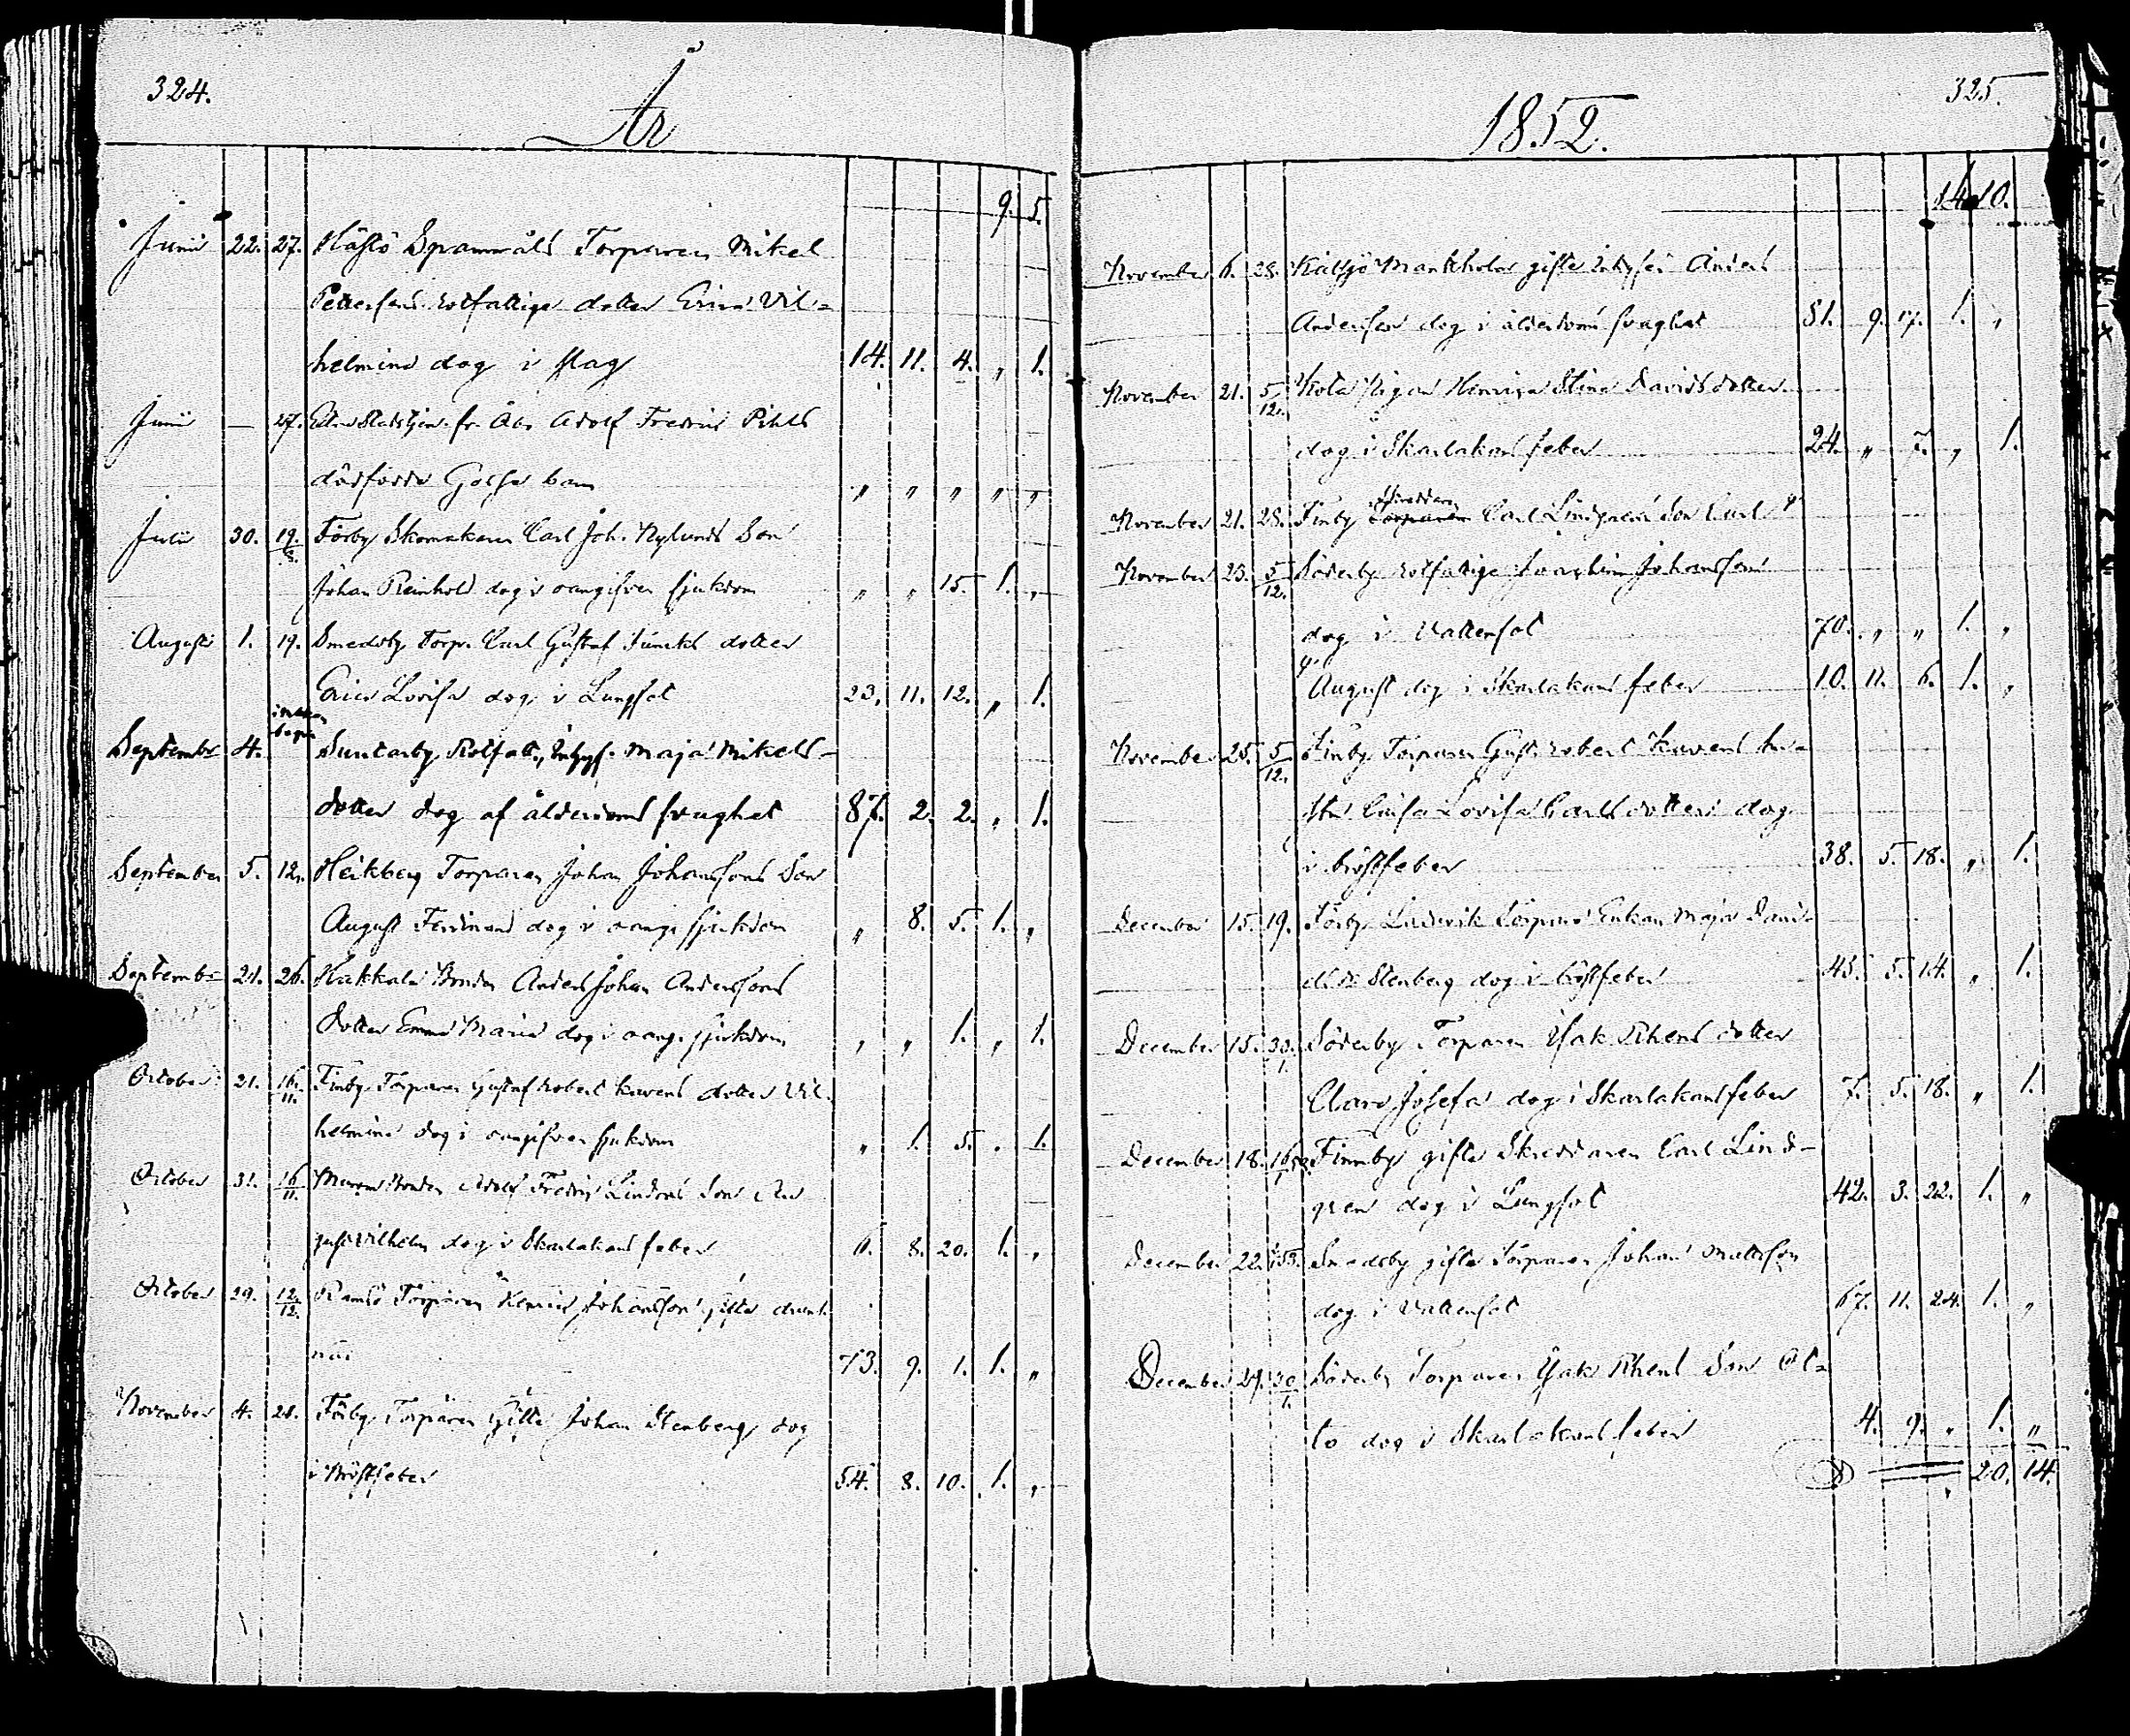 324.
År
9. 5.
Junii 22. 27. Torparen Mikel
Pettersons rotfattige dotter Erica Vil-
helmina dog i slag 14. 11. 4. „ 1.
Junii — 27. fr. Åbo Adolf Fredric Pihls
dödfödde Gosse barn „ „ „ „ „
Julii 30. 19./8. Förby Skomakaren Carl Joh. Nylunds Son
Johan Reinhold dog i oangifven sjukdom „ „ 15. 1. „
Augusti 1. 19. Smedsby Torp. Carl Gustaf dotter
Erica Lovisa dog i Lungsot 23. 11. 12. „ 1.
September 4. Rotfatt. Inhys. Maja Mikels-
dotter dog af ålderdoms svaghet 87. 2. 2. „ 1.
September 5. 12. Torparen Johan Johanssons Son
August Ferdinand dog i oang. sjukdom „ 8. 5. 1. „
September 21. 26. Hakkala Bonden Anders Johan Anderssons
dotter Emma Maria dog i oang. sjukdom „ „ 1. „ 1.
October 21. 16./11. Finby Torparen Gustaf Robert dotter Vil-
helmina dog i oangifven sjukdom „ 1. 5. „ 1.
October 31. 16./11. Bonden Adolf Fredric Lindroos Son Au
gust Vilhelm dog i Skarlakans feber 6. 8. 20. 1. „
October 29. 12./12. Ramsö Torparen Henric Johansson Gifte drunk-
nat 73. 9. 1. 1. „
November 4. 28. Förby Torparen Gifte Johan Stenberg dog
i Bröstfeber 54. 8. 10. 1. „
1852.
325.
14. 10.
November 6. 28. gifte Inhyses Anders
Andersson dog i ålderdoms svaghet 81. 9. 17. 1. „
November 21. 5/12. Pigan Henrica Stina Davidsdotter
dog i Skarlakans feber 24. „ 7. „ 1.
Skreddaren
November 21. 28. Finby Torparen Carl Lindgrens Son Carl
November 23. 5/12. Söderby rotfattige Joachim Johansson
dog i Vattensot 70. „ „ 1. „
August dog i Skarlakans feber 10. 11. 6. 1. „
November 25. 5/12. Finby Torparen Gust. Robert hu-
stru Caisa Lovisa Carlsdotter dog
i bröstfeber 38. 5. 18. „ 1.
December 15. 19. Förby Torpare Enkan Maja
Stenberg dog i bröstfeber 45. 5. 14. „ 1.
December 15. 30./1. Söderby Torparen Isak Rhens dotter
Clara Josefa dog i Skarlakansfeber 7. 5. 18. „ 1.
December 18. Finnby gifte Skreddaren Carl Lind-
gren dog i Lungsot 42. 3. 22. 1. „
December 22. Smedsby gifte Torparen Johan Mattsson
dog i Vattensot 67. 11. 24. 1. „
December 29. 30/1. Söderby Torparen Isak Rhens Son Ot-
to dog i Skarlakansfeber 4. 9. „ 1. „
20. 14.